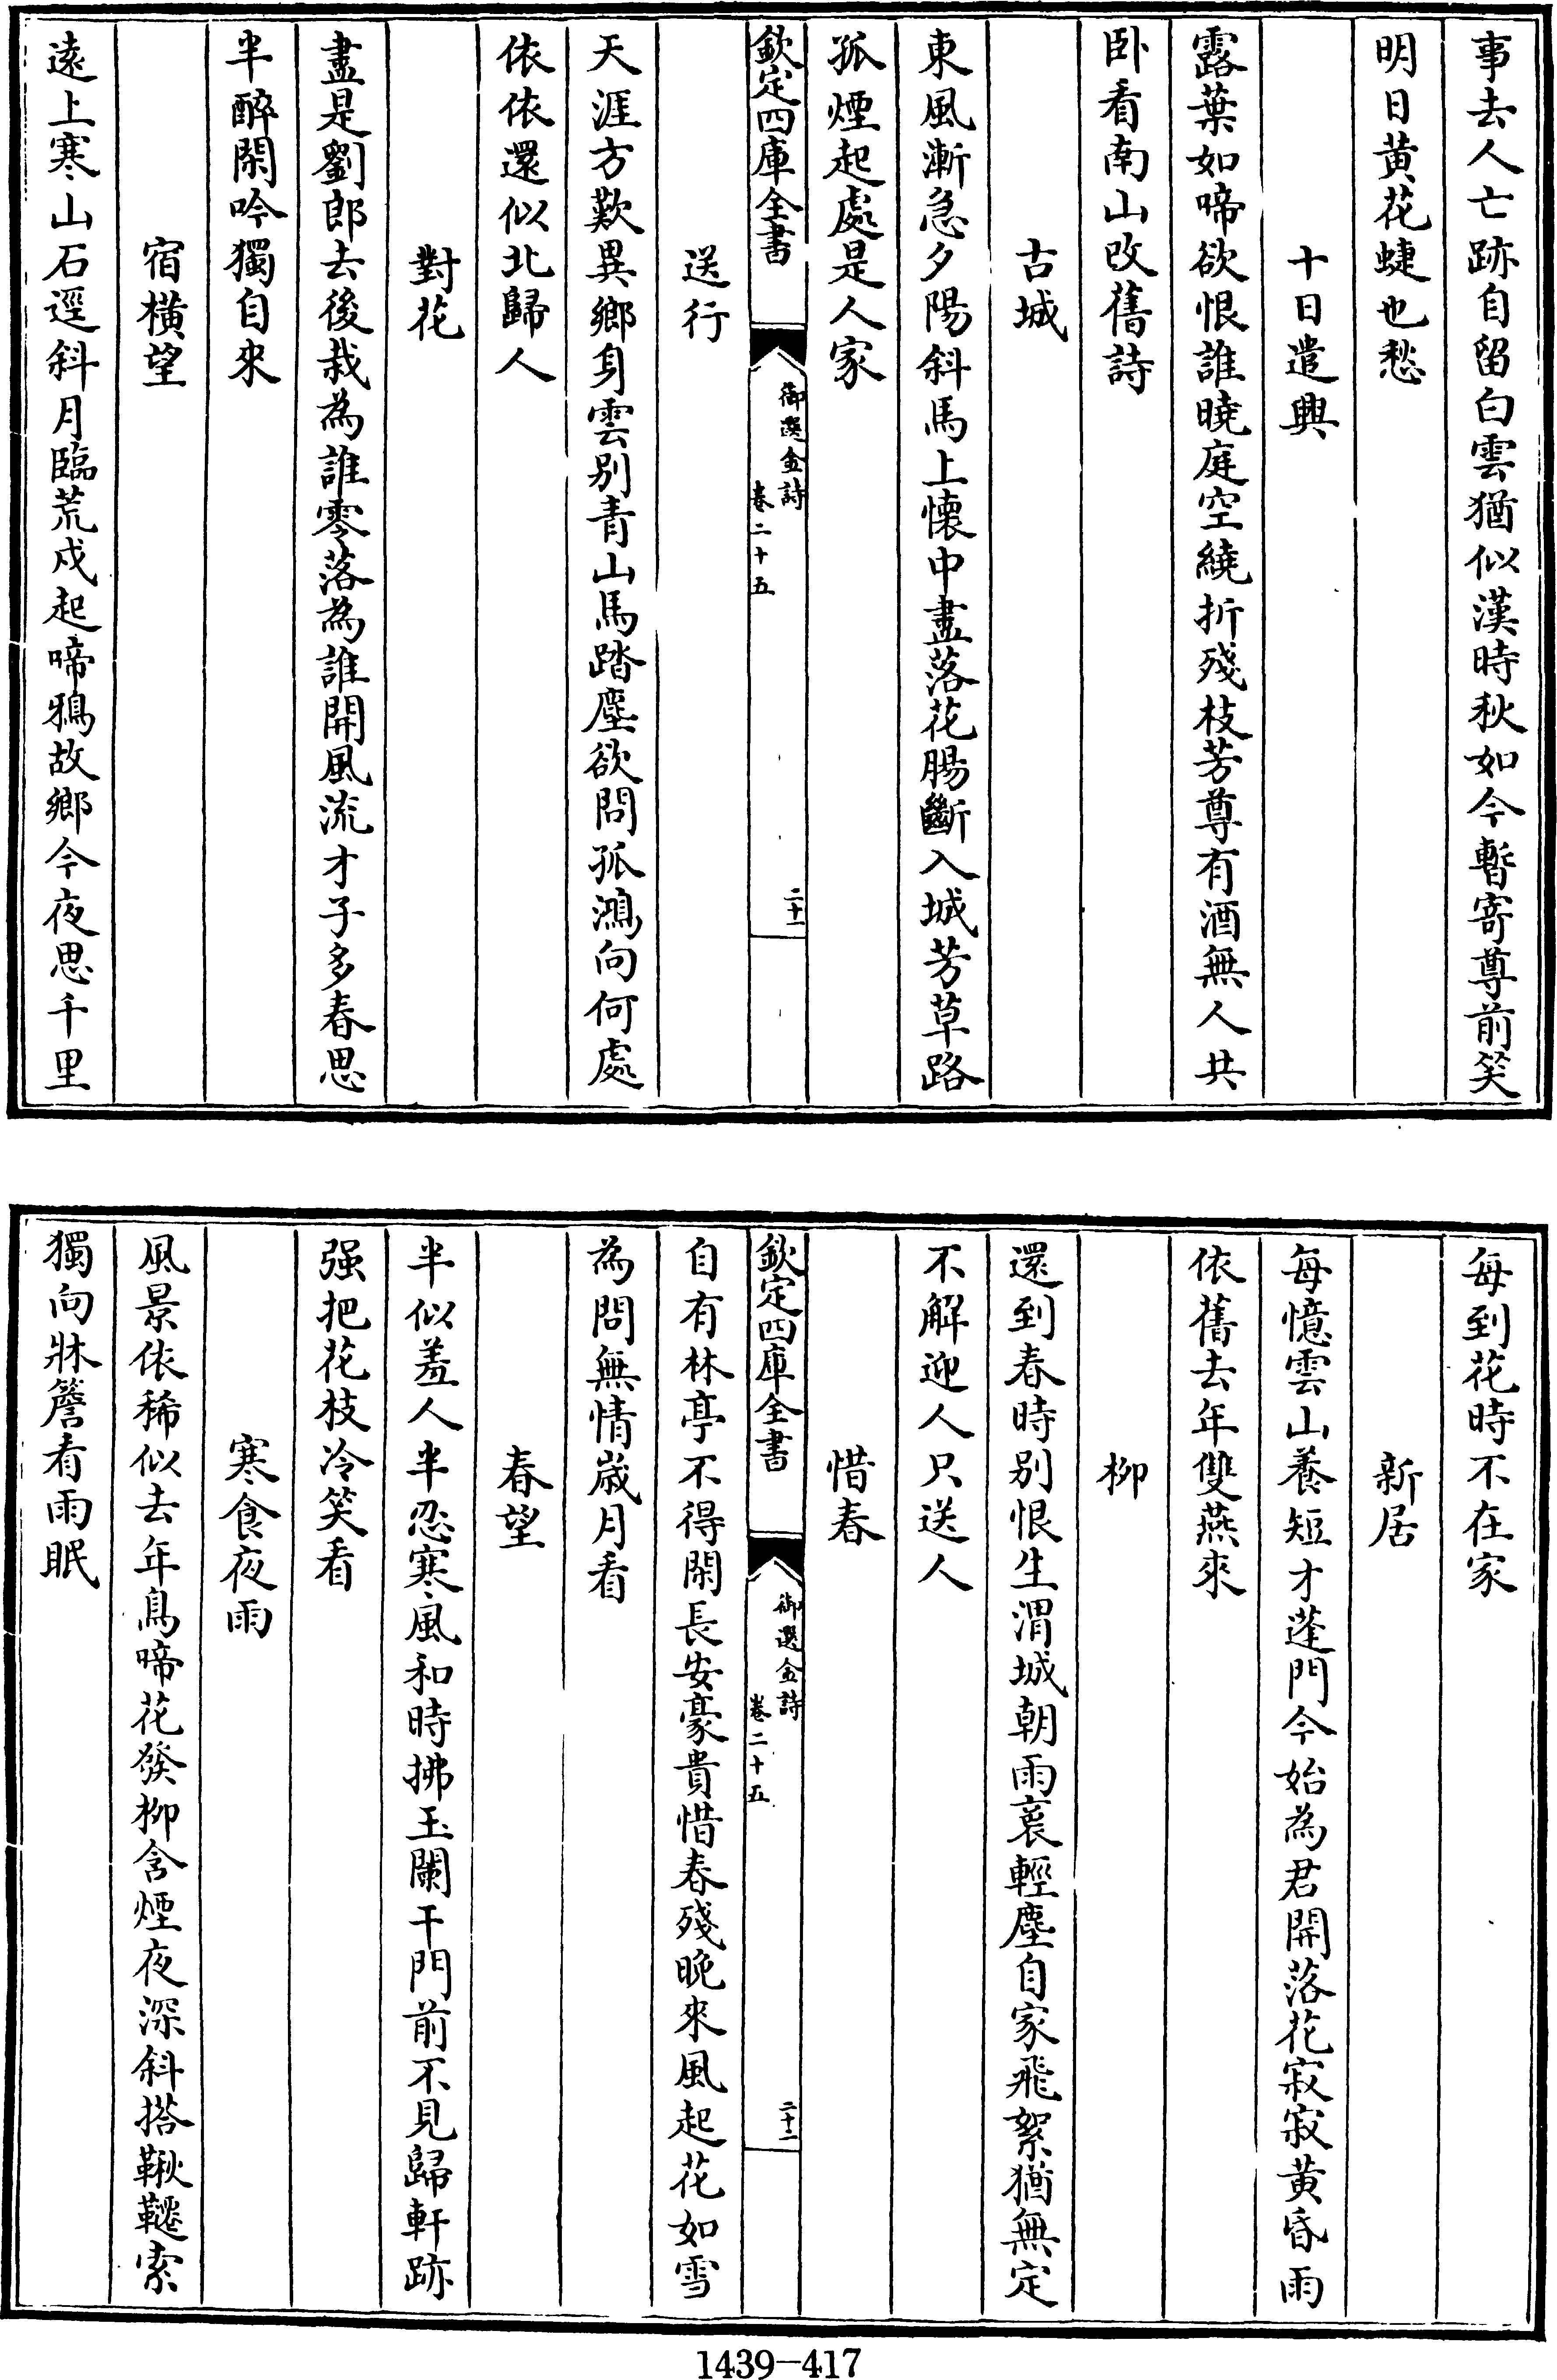 事去人亡跡自留白雲猶似漢時秋如今暫寄尊前笑
明日黄花蜨也愁
十日遣興
露葉如啼欲恨誰曉庭空繞折殘枝芳尊有酒無人共
卧看南山改舊詩
古城
東風漸急夕陽斜馬上懷中盡落花腸斷入城芳草路
孤煙起處是人家
欽定四庫全書
御選金詩
卷二十五
二十一
送行
天涯方歎異鄉身雲別青山馬踏塵欲問孤鴻向何處
依依還似北歸人
對花
盡是劉郎去後栽為誰零落為誰開風流才子多春思
半醉閑吟獨自來
宿橫望
遠上寒山石逕斜月臨荒戍起啼鴉故鄉今夜思千里
每到花時不在家
新居
每憶雲山養短才蓬門今始為君開落花寂寂黄昏雨
依舊去年雙燕來
柳
還到春時別恨生渭城朝雨裛輕塵自家飛絮猶無定
不解迎人只送人
惜春
欽定四庫全書
御選金詩
卷二十五
二十二
自有林亭不得閑長安豪貴惜春殘晚來風起花如雪
為問無情嵗月看
春望
半似羞人半忍寒風和時拂玉闌干門前不見歸軒跡
强把花枝冷笑看
寒食夜雨
風景依稀似去年鳥啼花發柳含煙夜深斜搭鞦韆索
獨向牀簷看雨眠
1439-417